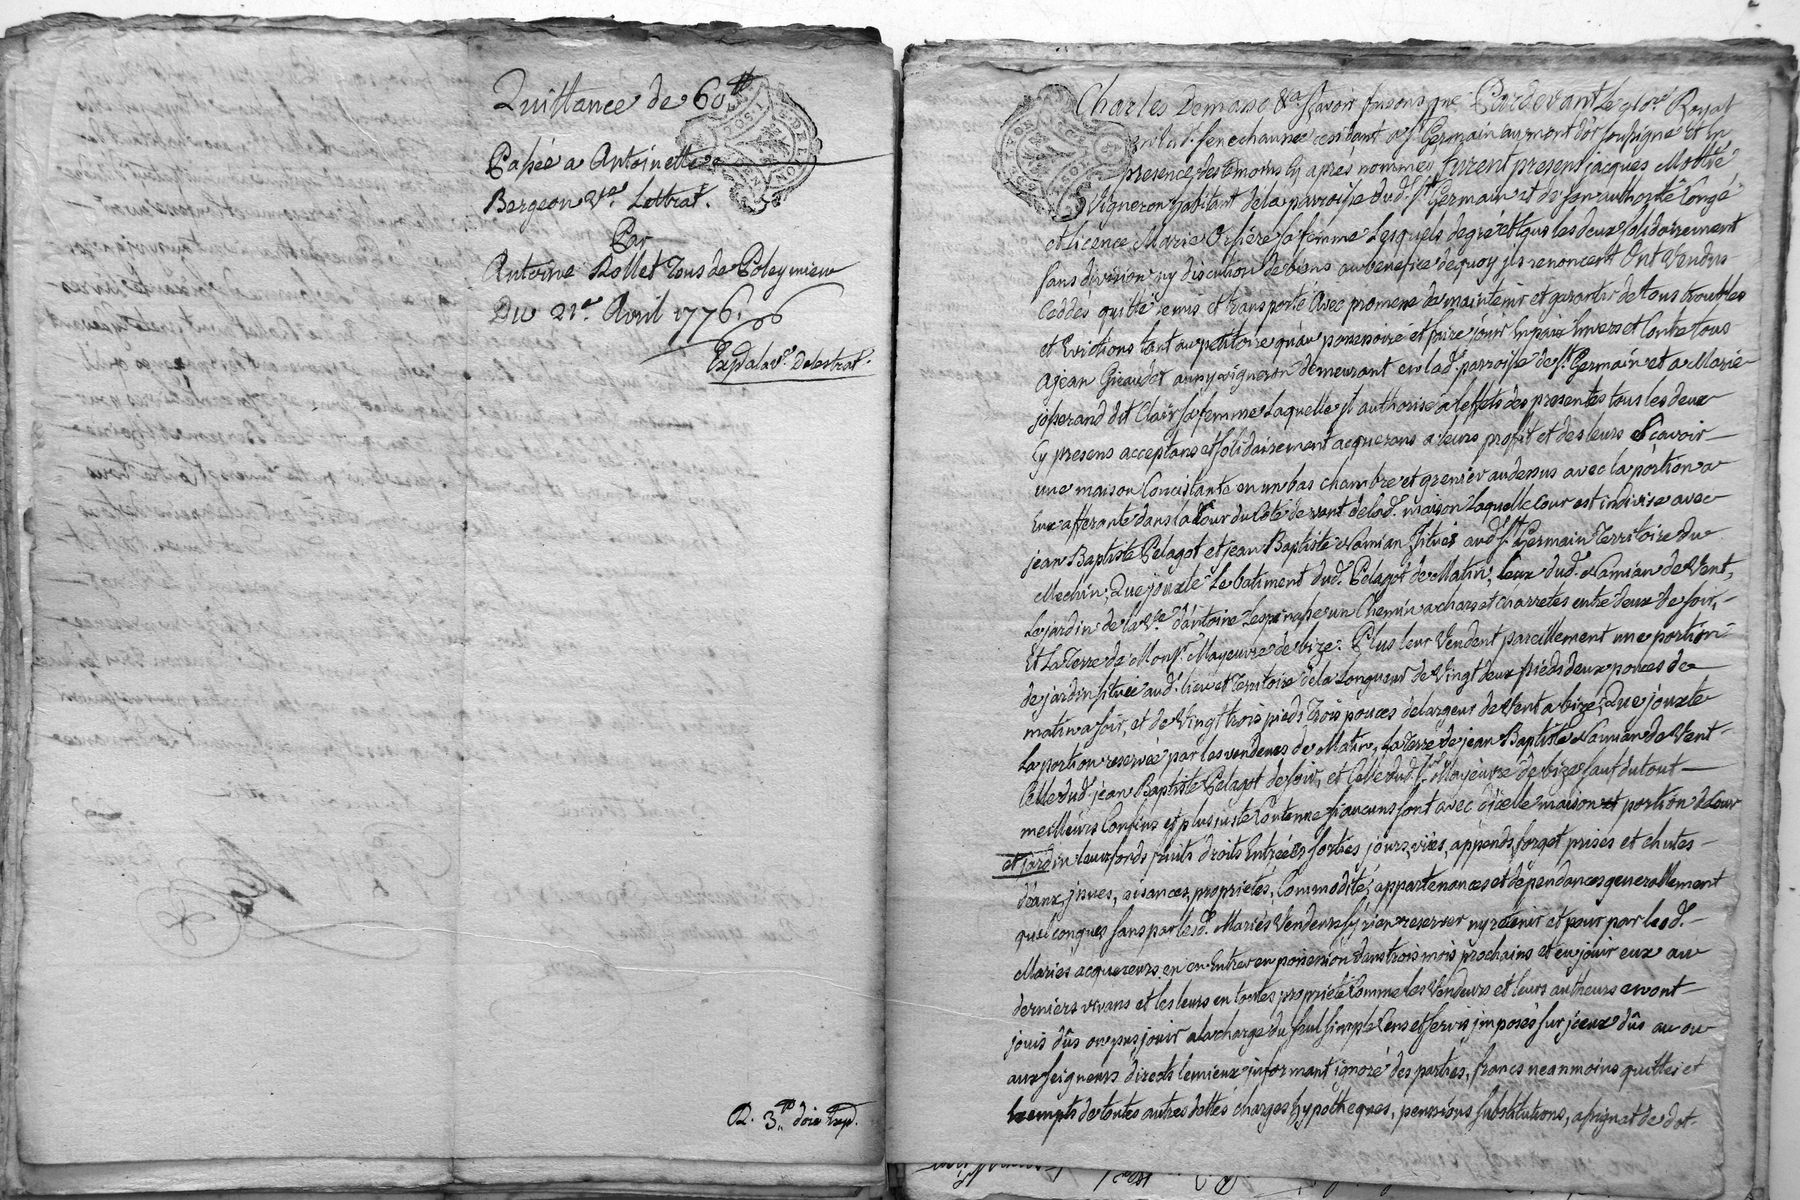 Quittance de 60 ₶
Passée a Antoinette
Bergeon Vve. Lettrat.
Par
Antoine Rollet Tous de Poleymieu
Du 21e. Avril 1776.
Expd a la Ve. Delettrat.
R. 3 ₶ doit Exp.
Charles Demasso &a Sçavoir faisons que Pardevant le Nore Royal
en lad. senechaussée residant a St. Germain au mont d'or soussigné et en
presence des temoins cy apres nommés furent presens jacques
Vigneron habitant de la parroisse dud. St. Germain et de son authorité Congé
et licence Marie sa femme Lesquels de gré et tous les deux solidairement
sans division ny discution de biens au benefice dequoy ils renoncent Ont Vendus
Ceddés quitté remis et transporté avec promesse de maintenir et garantir de tous troubles
et Evictions tant au petitoire qu'au possessoire et faire jouir En paix Envers et Contre tous
a jean Giraudet aussy vigneron demeurant en lad. parroisse de St. Germain et a Marie
josserand dit Clair sa femme Laquelle il authorise a l'effets des presentes tous les deux
Cy presens acceptans et solidairement acquerans a leurs profit et des leurs Sçavoir
une maison Concistante en un bas chambre et grenier au dessus avec la portion a
Eux afferante dans la Cour du Coté devant de lad. maison Laquelle Cour est indivise avec
jean Baptiste Pelagot et jean Baptiste Damian Situés aud. St. Germain Territoire du
Mechin, Que jouxte Le batiment dud. Pelagot de Matin, Ceux dud. Damian de Vent,
Le jardin de la Vve. d'antoine Lespinasse un Chemin a chars et charretes entre deux de soir,
Et La Terre de Monsr. Mayeuvre de bize. Plus leur Vendent pareillement une portion
de jardin située aud. lieu et Territoire de la Longueur de Vingt deux pieds deux pouces de
matin a soir, et de Vingt trois pieds Trois pouces de largeur de Vent a bize, Que jouxte
La portion reservée par les vendeurs de Matin, La Terre de jean Baptiste Damian de Vent
Celle dud. jean Baptiste Pelagot de soir, et Celle dud. Sr. Mayeuvre de bize sauf du tout
meilleurs Confins et plus juste Contenue si aucuns sont avec d'icelle maison et portion de Cour
et jardin leurs fonds fruits droits Entrées sorties jours, vües, appends, forget prises et chutes
d'eaux, jssues, aisances, proprietés, Commodité, appartenances et dependances generallement
quelconques sans par lesd. Mariés Vendeurs s'y rien reserver ny retenir et pour par lesd.
Mariés acquereurs en en Entrer en possession dans trois mois prochains et en jouir eux au
derniers vivans et les leurs en toutes proprieté Comme les Vendeurs et leurs autheurs en ont
jouis dûs ou pus jouir a la charge du seul simple Cens et servis jmposés sur jceux dûs au ou
aux seigneurs directs le mieux informant ignoré des parties, francs neanmoins quittes et
Exempts de toutes autres dettes charges hypotheques, pensions substitutions, assignat de dot